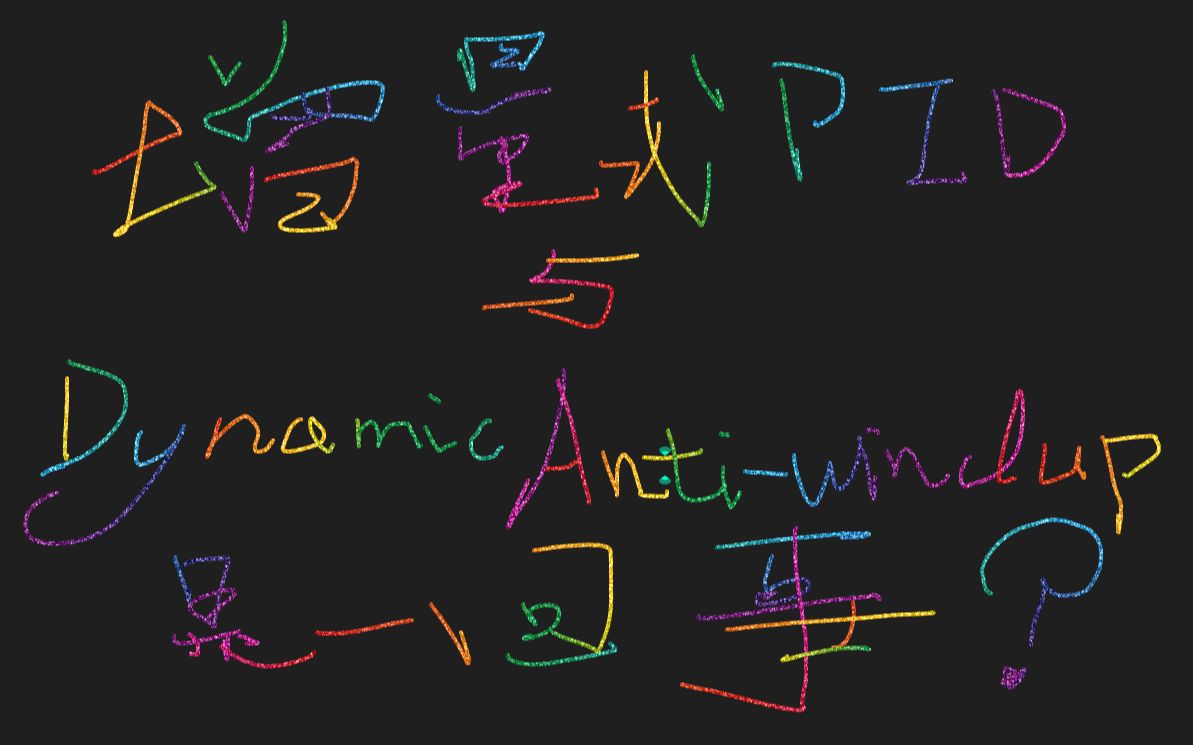 增量式PID
与
Dynamic Anti-windup
是一回事?